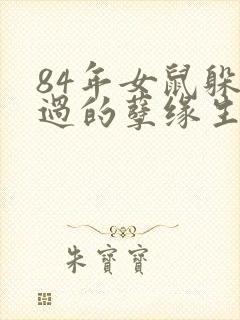 84年女鼠躲
过的孽缘生
朱寶寶